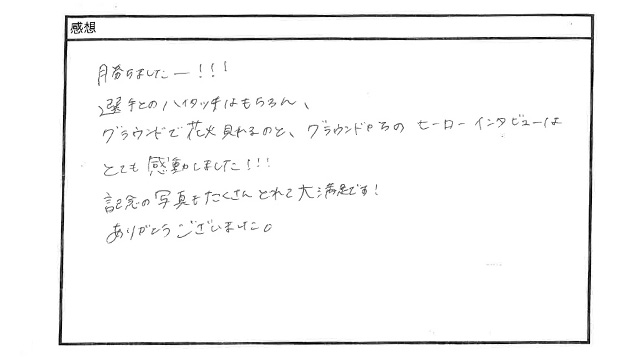 感想
勝ちましたー!!!
選手とのハイタッチはもちろん、
グラウンドで花火見れるのと、グラウンドからの ヒーローインタビューは
とても感動しました!!!
記念の写真もたくさんとれて大満足です!
ありがとうございました。